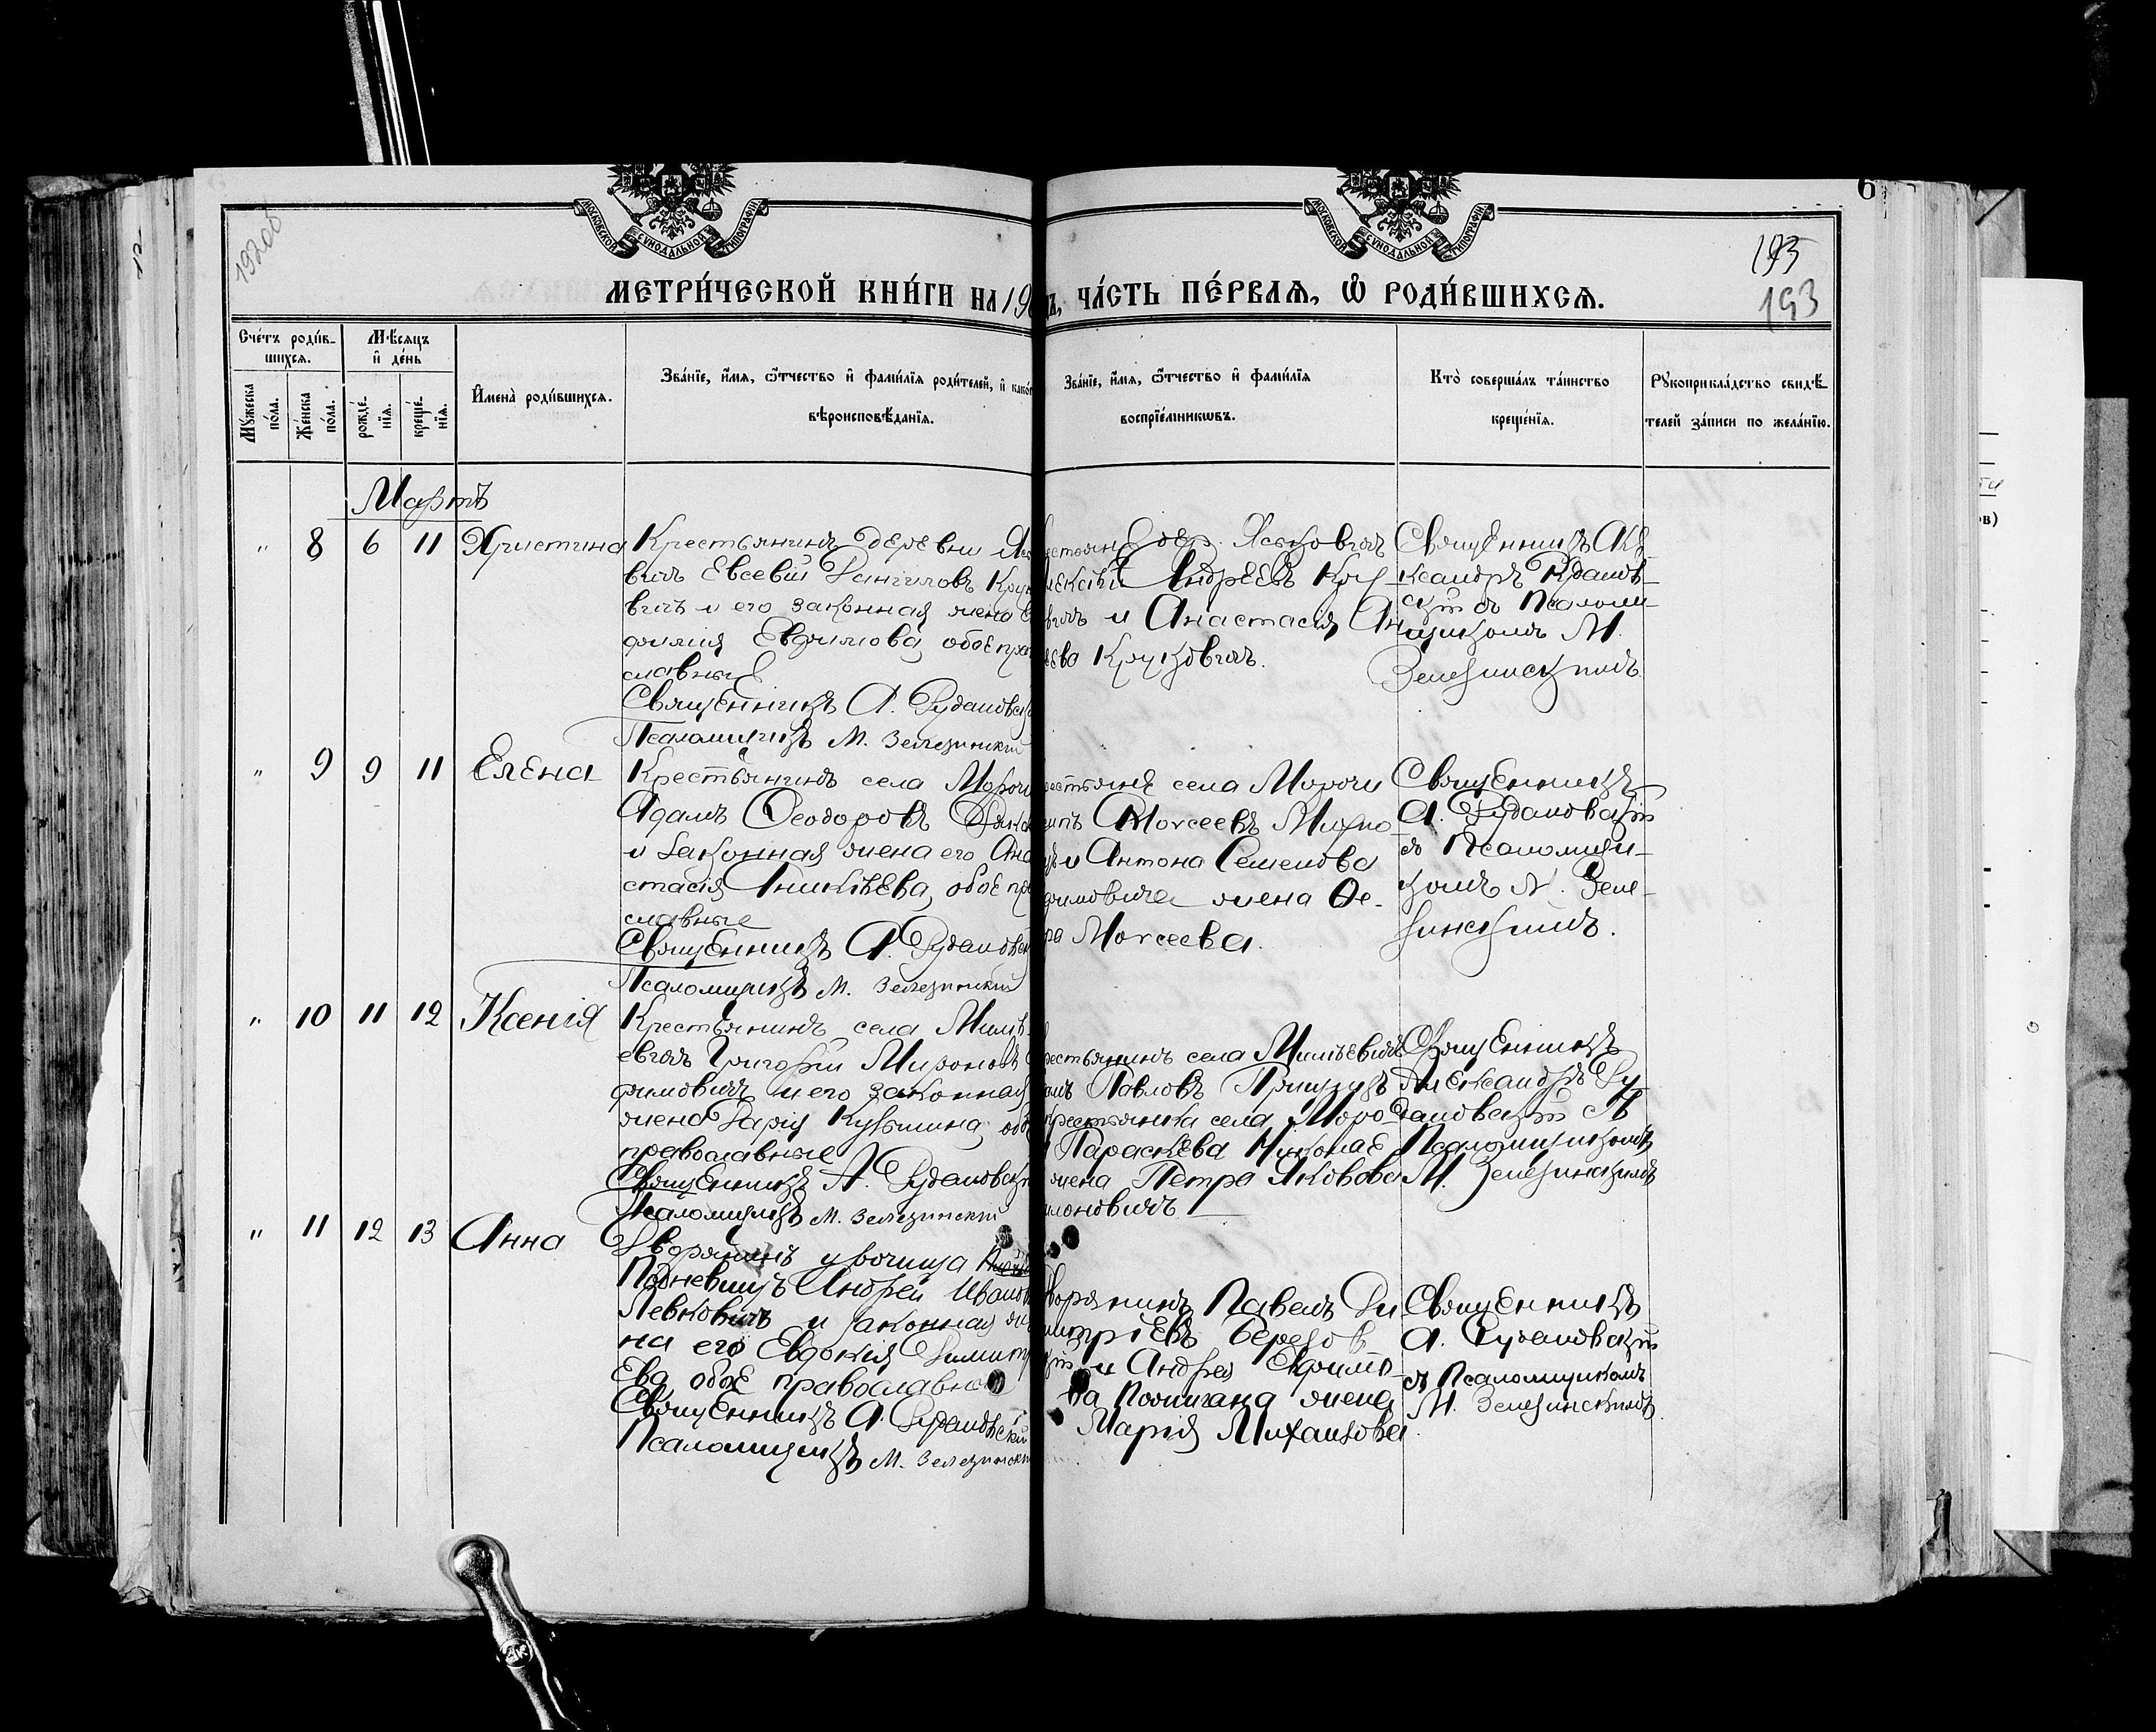 192об
6
193
193
МОСКОВСКОЙ СѴНОДАЛЬНОЙ ТИПОГРАФІИ
МОСКОВСКОЙ СѴНОДАЛЬНОЙ ТИПОГРАФІИ
МЕТРИ́ЧЕСКОЙ КНИ́ГИ НА 19
ЧА́СТЬ ПЕ́РВАѦ, Ѽ РОДИ́ВШИХСѦ.
Сче́тъ роди́в-
шихсѧ.
Мѣ́сѧцъ
и҆ де́нь
Мꙋ́жеска
по́ла.
Же́нска
по́ла.
рожде́-
нїѧ.
креще́-
нїѧ.
И҆мена̀ роди́вшихсѧ.
Зва́нїе, и҆́мѧ, ѻ҆́тчество и҆ фами́лїѧ роди́телей, и҆ како́
вѣроисповѣ́данїѧ.
Зва́нїе, и҆́мѧ, ѻ҆́тчество и҆ фами́лїѧ
воспрїе́мникѡвъ.
Кто̀ соверша́лъ та́инство
креще́нїѧ.
Рꙋкоприкла́дство свидѣ́-
телей за́писи по жела́нїю.
Мартъ
" 8 6 11 Христина
Крестьянинъ деревни Ясь
вичъ Евсевій Даниловъ Крук
вичъ и его законная жена Е
фимія Евфимова, обое пра
славные
Священникъ А. Рудановск
Псаломщикъ М. Зелезинскій
естьяне дер. Яськовичъ
лексѣй Андреевъ Кру
вичъ и Анастасія Ан
еева Круковичъ.
Священникъ Але-
ксандръ Рудановъ-
скій съ Псаломщ-
щикомъ М.
Зелезинскимъ
" 9 9 11 Елена
Крестьянинъ села Мороч
Адамъ Ѳеодоровъ
и законная жена его Ана
стасія Аникѣева, обое пра
славные
Священникъ А. Рудановск
Псаломщикъ М. Зелезинскій
рестьяне села Морочи
Моисеевъ
и Антона Семенова
фимовича жена Ѳе-
ра Моисеева.
Священникъ
А. Рудановскій
съ Псаломщи-
комъ М. Зеле-
зинскимъ.
" 10 11 12 Ксенія
Крестьянинъ села Милѣ-
евичъ Григорій Мироновъ
фимовичъ и его законная
жена Дарія Кузьмина, обо
православные
Священникъ А. Рудановскі
Псаломщикъ М. Зелезинскій
рестьянинъ села Милѣевичъ
Павловъ
крестьянка села Моро
Параскева Николае
жена Петра Яковова
моновичъ
Священникъ
Александръ Ру-
дановскій съ
Псаломщикомъ
М. Зелезинскимъ
" 11 12 13 Анна
Дворянинъ урочища
Андрей Иванов
Левковичъ и законная же
на его Евдокія Димитрі
Ева обое православные
Священникъ А. Рудановскій
Псаломщикъ М. Зелезинскій
ворянинъ Павелъ Ди
митріевъ Березов
и Андрея Ефимо
ва жена
Марія Михаилова.
Священникъ
А. Рудановскій
съ Псаломщикомъ
М. Зелезинскимъ.